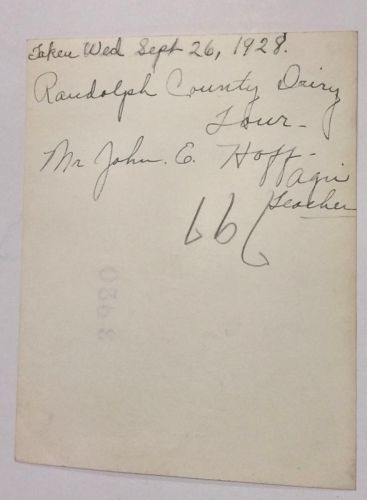 Taken Wed Sept 26, 1928.
Randolph County Dairy
Tour-
Mr John. E. Hoff-
Agri
Teacher
66